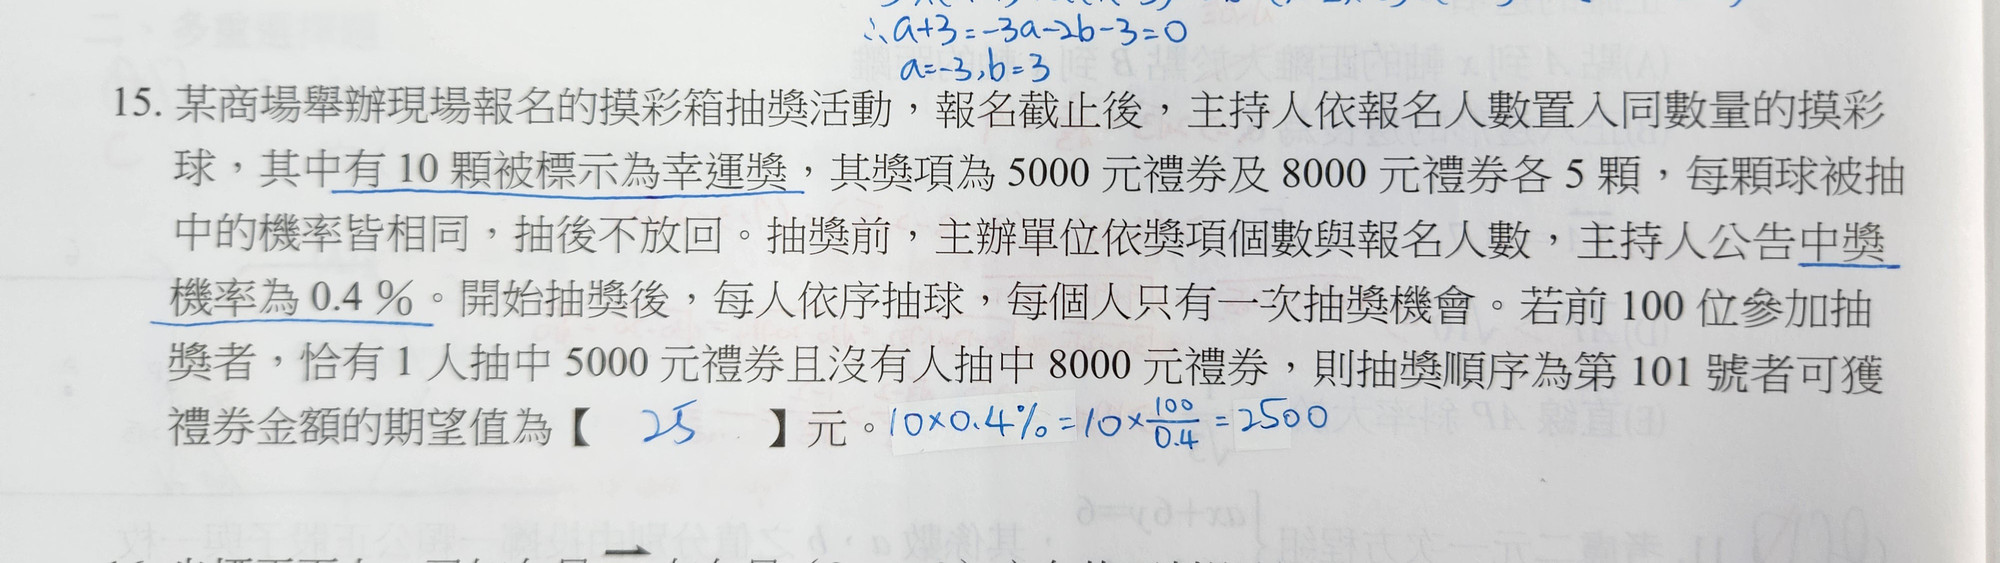 ∴a+3=-3a-2b-3=0
a=-3,b=3
15. 某商場舉辦現場報名的摸彩箱抽獎活動，報名截止後，主持人依報名人數置入同數量的摸彩
球，其中有 10 顆被標示為幸運獎，其獎項為 5000 元禮券及 8000 元禮券各 5 顆，每顆球被抽
中的機率皆相同，抽後不放回。抽獎前，主辦單位依獎項個數與報名人數，主持人公告中獎
機率為 0.4 %。開始抽獎後，每人依序抽球，每個人只有一次抽獎機會。若前 100 位參加抽
獎者，恰有 1 人抽中 5000 元禮券且沒有人抽中 8000 元禮券，則抽獎順序為第 101 號者可獲
禮券金額的期望值為【 25 】元。10×0.4%=10×100/0.4=2500